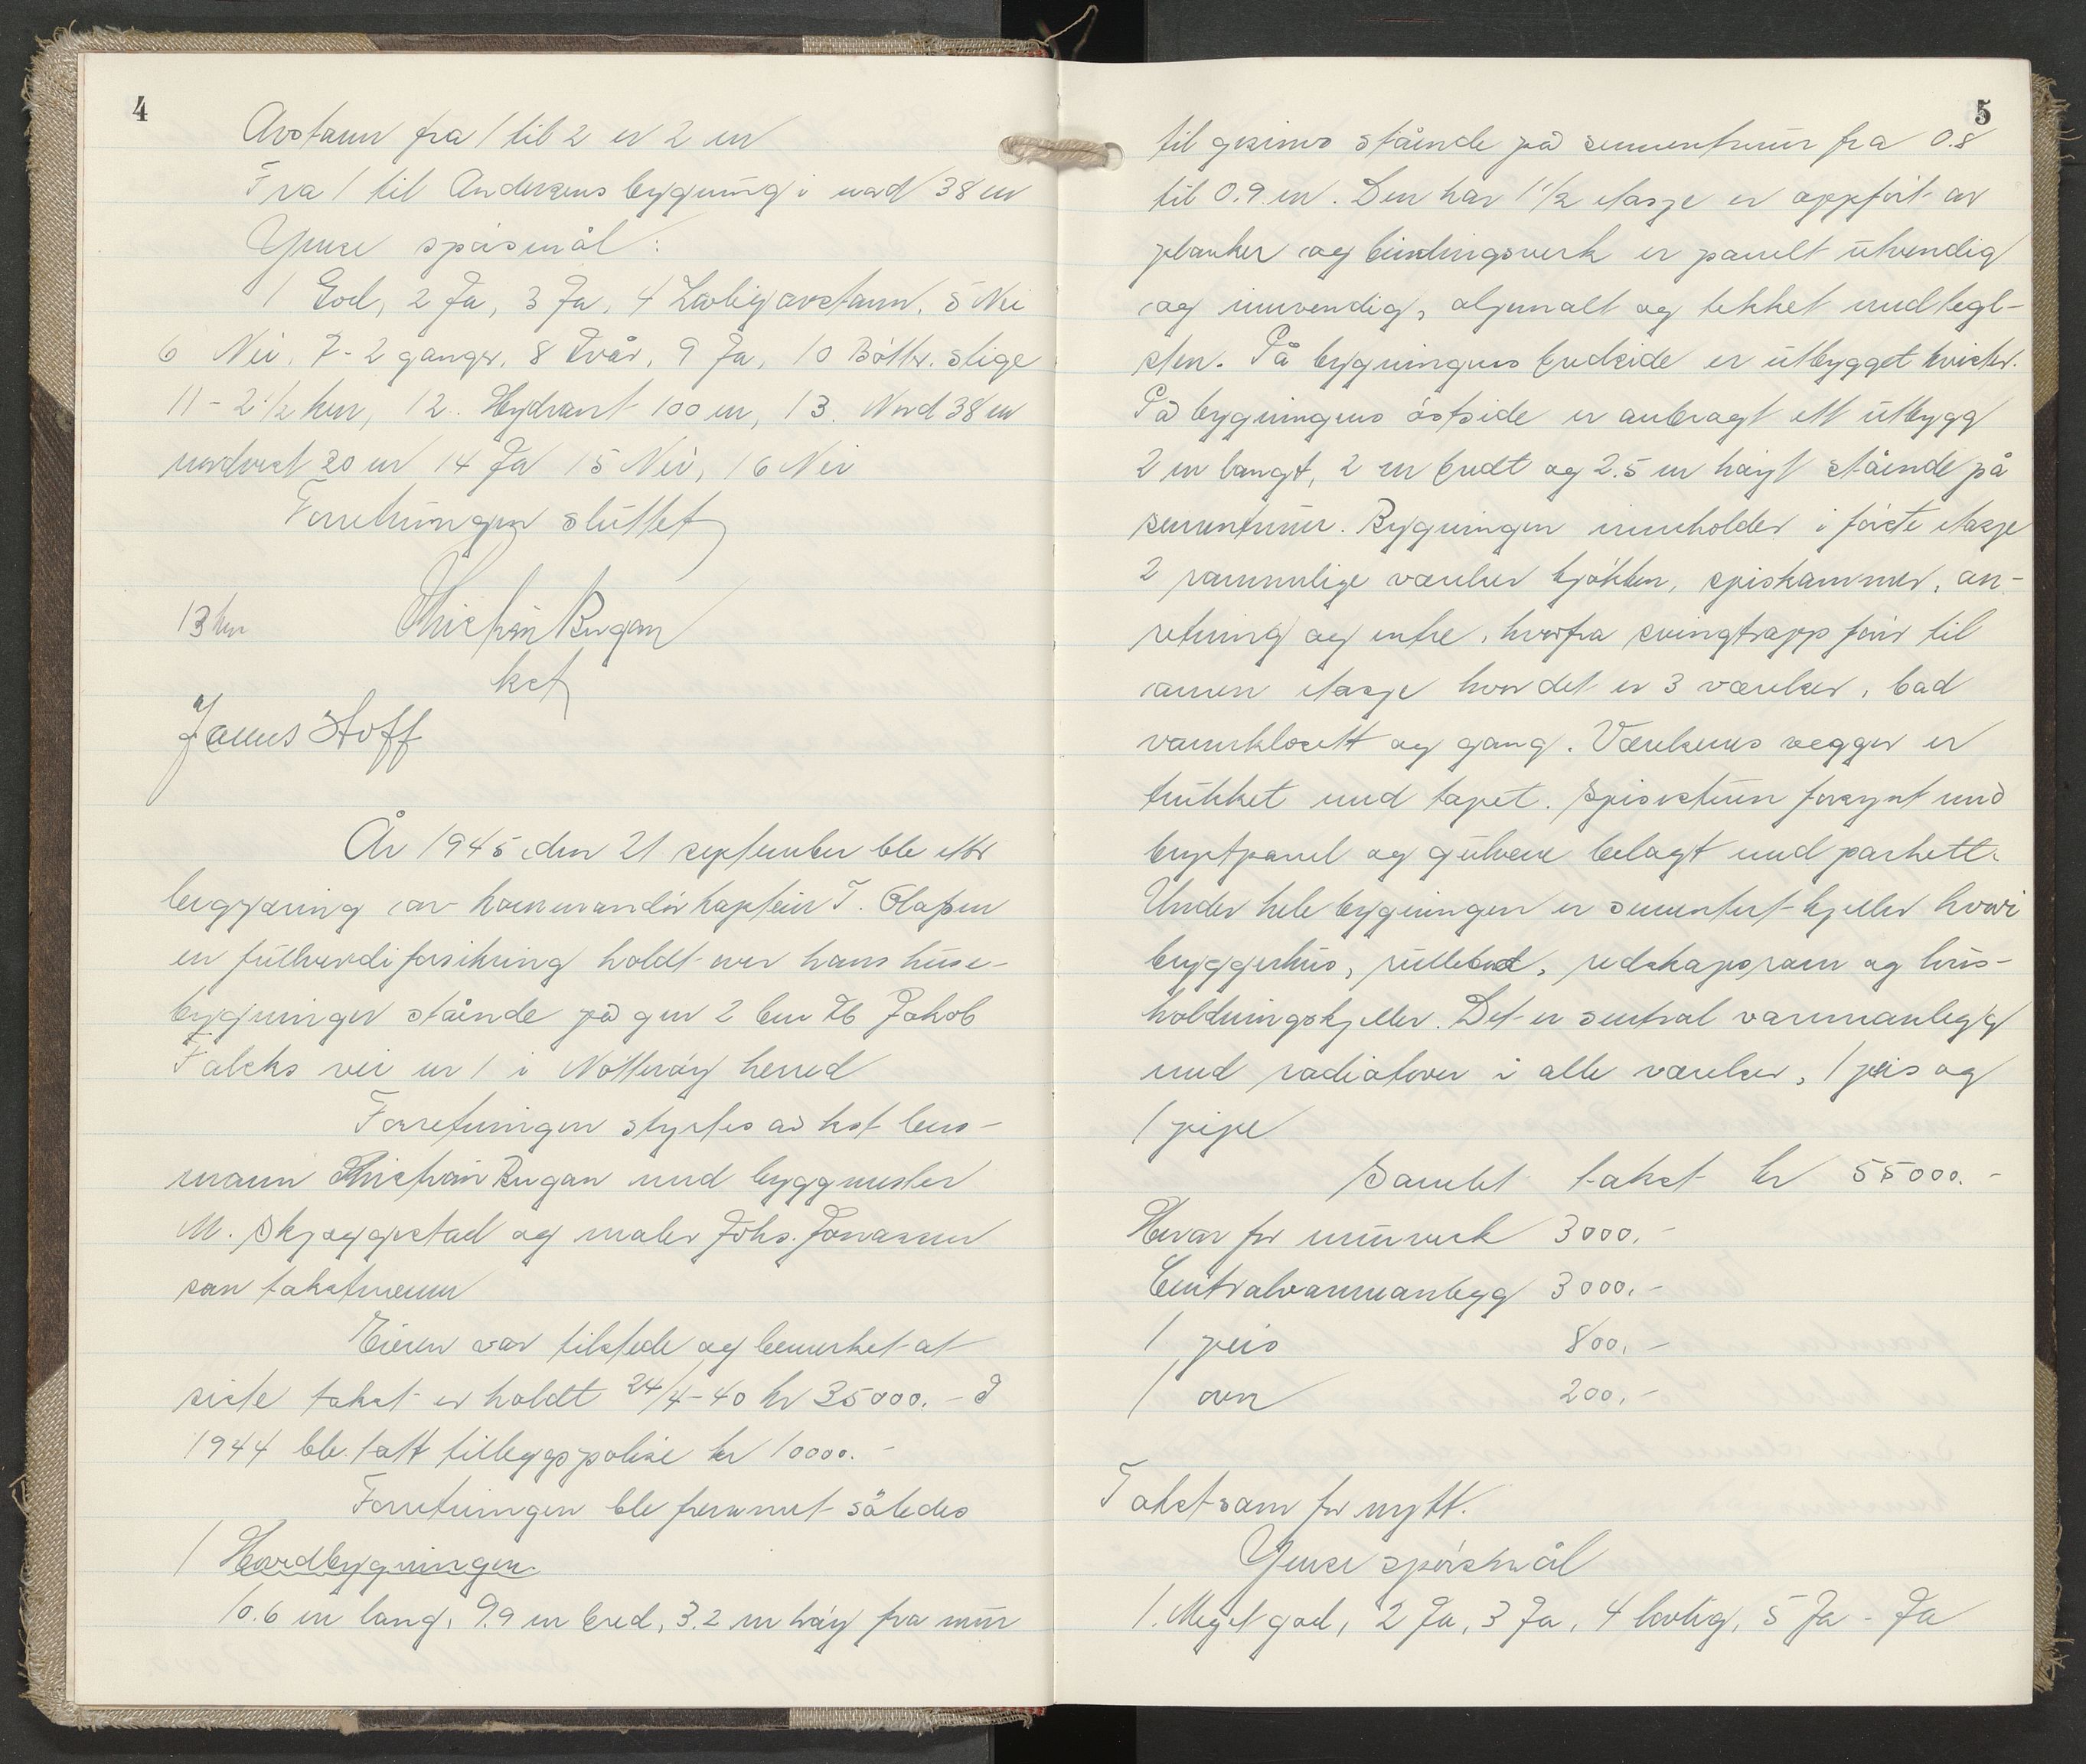 4
Avstann fra 1 til 2 er 2 m
Fra 1 til Andersens bygning i nord 38 m
Ymse spörsmål:
1 God, 2 Ja, 3 Ja, 4 Lovlig avstann, 5 Nei
6 Nei, 7 - 2 ganger, 8 Tvår, 9 Ja, 10 Bötter. stige
11 - 2 1/2 km, 12. Hydrant 100 m, 13. Nord 38 m
nordvest 20 m 14 Ja 15 Nei, 16 Nei
Forretningen sluttet
13 km
Kristian Bugan
kst
James Hoff
År 1945 den 21 september ble etter
begjæring av kommandörkaptein T. Olafsen
en fullverdiforsikring holdt over hans huse-
bygninger stående på gnr 2 bnr 76 Jakob
Falcks vei nr 1 i Nötteröy herred
Forretningen styrtes av kst lens-
mann Kristian Bugan med byggmester
M. Skjeggestad og maler Johs. Jonassen
som takstmenn
Eieren var tilstede og bemerket at
siste takst er holdt 24/4-40 kr 35000.- I
1944 ble tatt tilleggspolise kr 10000.-
Forretningen ble fremmet således
1 Hovedbygningen
10.6 m lang, 9.9 m bred, 3.2 m höy fra mur
5
til gesims stående på sementmur fra 0.8
til 0.9 m. Den har 1 1/2 etasje er oppfört av
planker og bindingsverk er panelt utvendig
og innvendig, oljemalt og tekket med tegl-
sten. På bygningens bredside er utbygget kvister.
På bygningens östside er anbragt ett utbygg
2 m langt, 2 m bredt og 2.5 m höyt stående på
sementmur. Bygningen inneholder i förste etasje
2 rommelige værelser kjökken, spiskammer, an-
retning og entre, hvorfra svingtrapp förer til
annen etasje hvor det er 3 værelser, bad
vannklosett og gang. Værelsenes vegger er
trukket med tapet. Spisestuen forsynt med
brystpanel og gulvene belagt med parkett.
Under hele bygningen er sementert kjeller hvori
bryggerhus, rullebod, redskapsrom og hus-
holdningskjeller. Det er sentral varmanlegg
med radiatorer i alle værelser, 1 peis og
1 pipe
Samlet takst kr 55000.-
Herav for murverk 3000.-
Centralvarmeanlegg 3000.-
1 peis 800.-
1 ovn 200.-
Takst som for nytt.
Ymse spörsmål
1. Meget god, 2 Ja, 3 Ja, 4 lovlig, 5 Ja - Ja